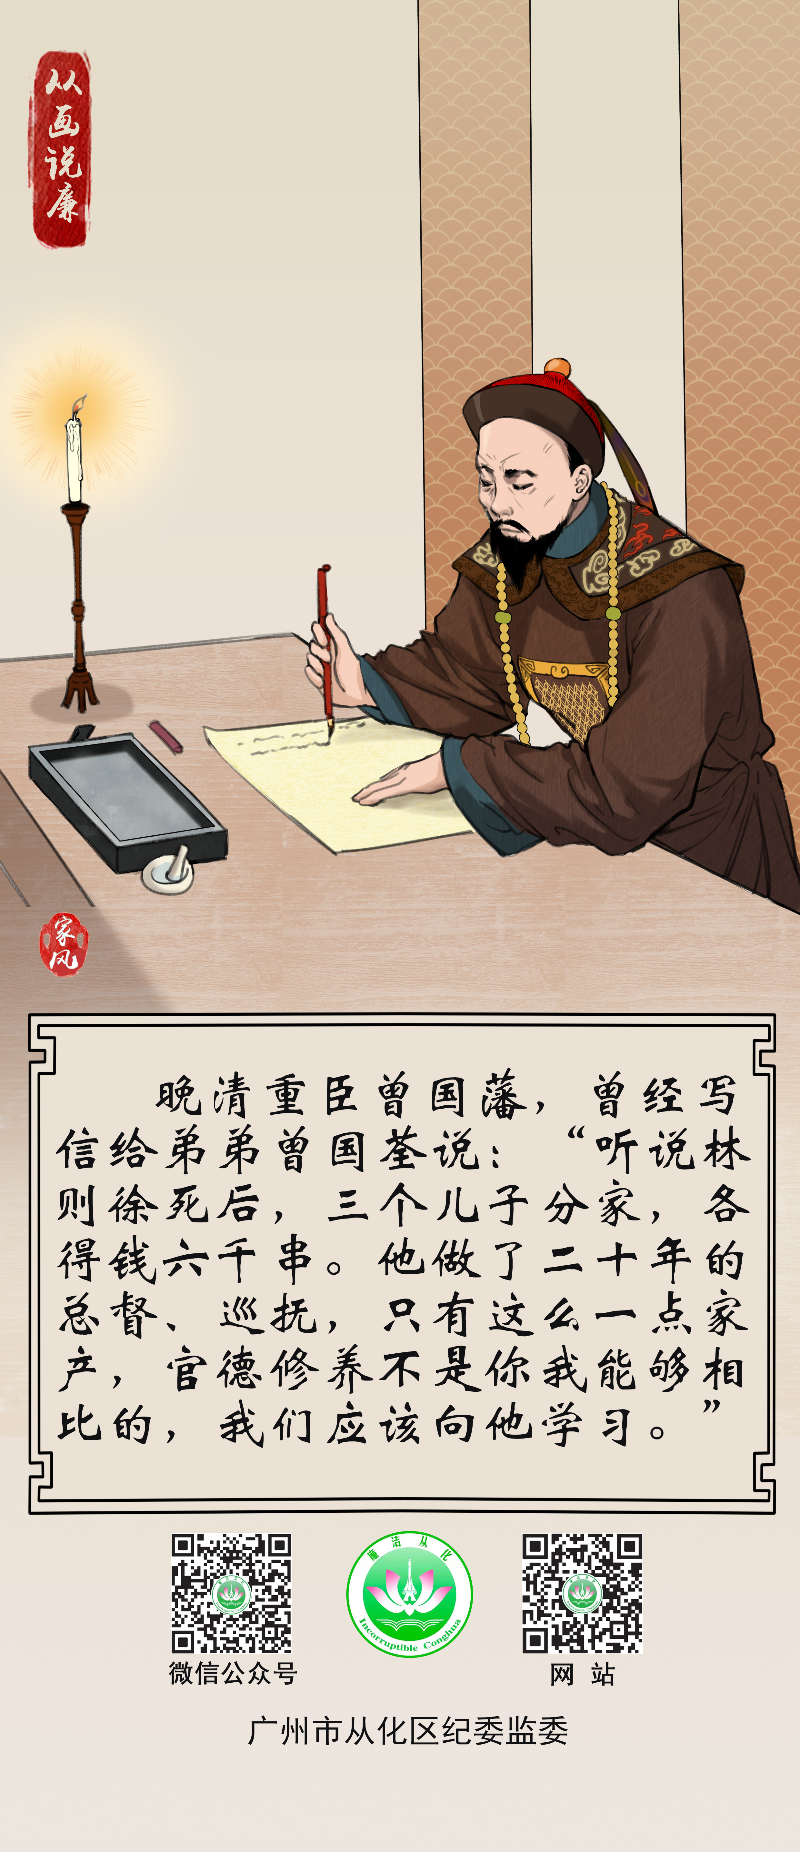 从画说廉
家风
晚清重臣曾国藩，曾经写
信给弟弟曾国荃说：“听说林
则徐死后，三个儿子分家，各
得钱六千串。他做了二十年的
总督、巡抚，只有这么一点家
产，官德修养不是你我能够相
比的，我们应该向他学习。”
廉洁从化
Incorruptible Conghua
微信公众号
网 站
广州市从化区纪委监委